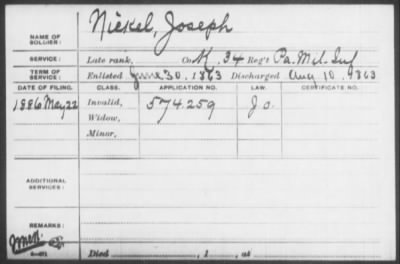 NAME OF SOLDIER: Nickel, Joseph
SERVICE: Late rank, Co. K, 34 Reg't Pa. Mil. Inf
TERM OF SERVICE: Enlisted June 30, 1863 Discharged Aug 10, 1863
DATE OF FILING. CLASS. APPLICATION NO. LAW. CERTIFICATE NO.
1886 May 22 Invalid, 574.259 J o.
Widow,
Minor,
ADDITIONAL SERVICES:
REMARKS:
Died , 1 , at